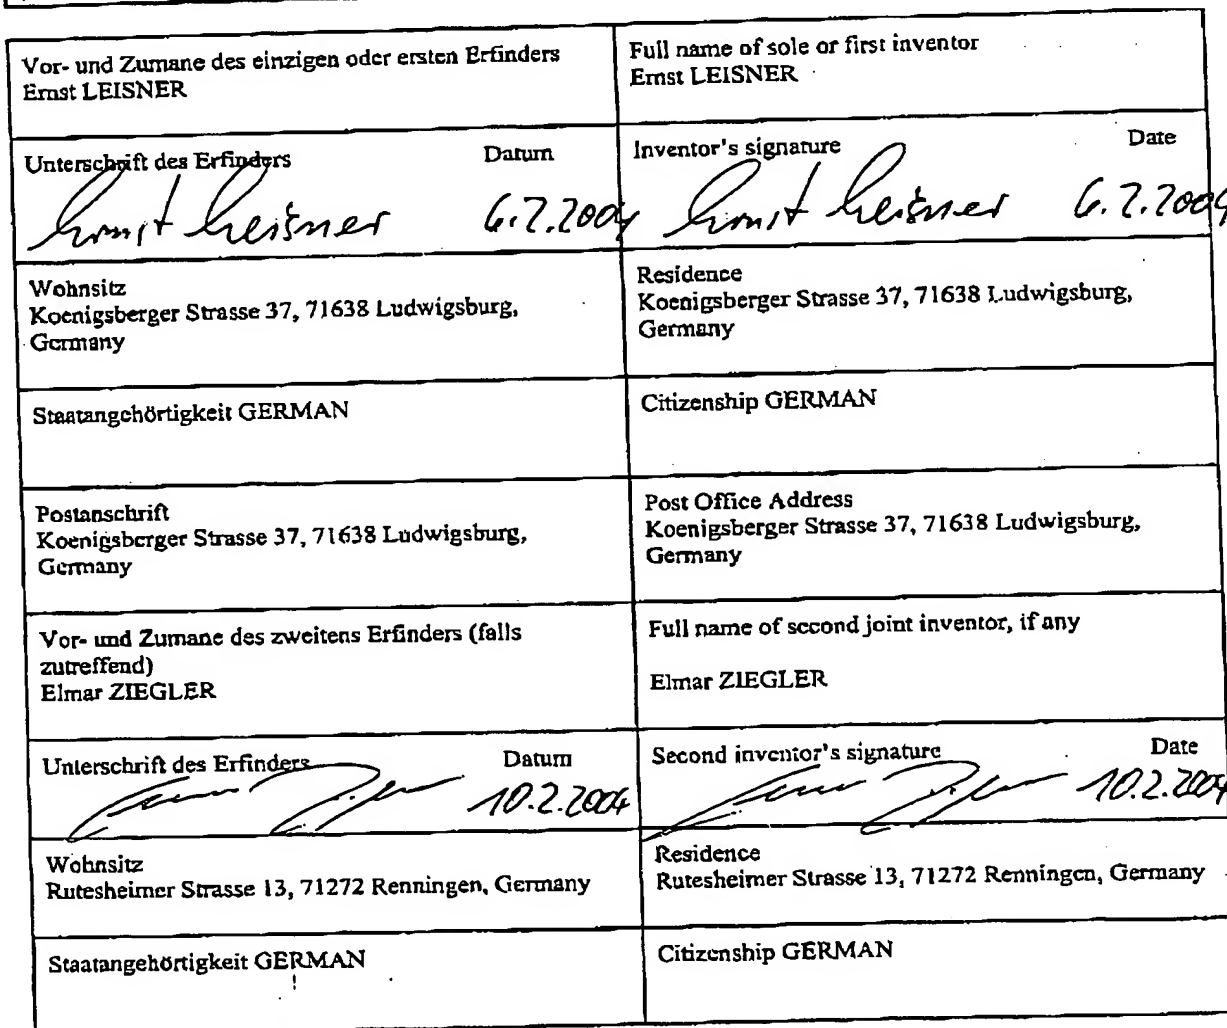 Vor- und Zumane des einzigen oder ersten Erfinders
Ernst LEISNER
Full name of sole or first inventor
Ernst LEISNER
Unterschrift des Erfinders Datum
Ernst Leisner 6.2.2004
Inventor's signature Date
Ernst Leisner 6.2.2004
Wohnsitz
Koenigsberger Strasse 37, 71638 Ludwigsburg,
Germany
Residence
Koenigsberger Strasse 37, 71638 Ludwigsburg,
Germany
Staatangehörtigkeit GERMAN
Citizenship GERMAN
Postanschrift
Koenigsberger Strasse 37, 71638 Ludwigsburg,
Germany
Post Office Address
Koenigsberger Strasse 37, 71638 Ludwigsburg,
Germany
Vor- und Zumane des zweitens Erfinders (falls
zutreffend)
Elmar ZIEGLER
Full name of second joint inventor, if any
Elmar ZIEGLER
Unterschrift des Erfinders Datum
10.2.2004
Second inventor's signature Date
10.2.2004
Wohnsitz
Rutesheimer Strasse 13, 71272 Renningen, Germany
Residence
Rutesheimer Strasse 13, 71272 Renningen, Germany
Staatangehörtigkeit GERMAN
Citizenship GERMAN